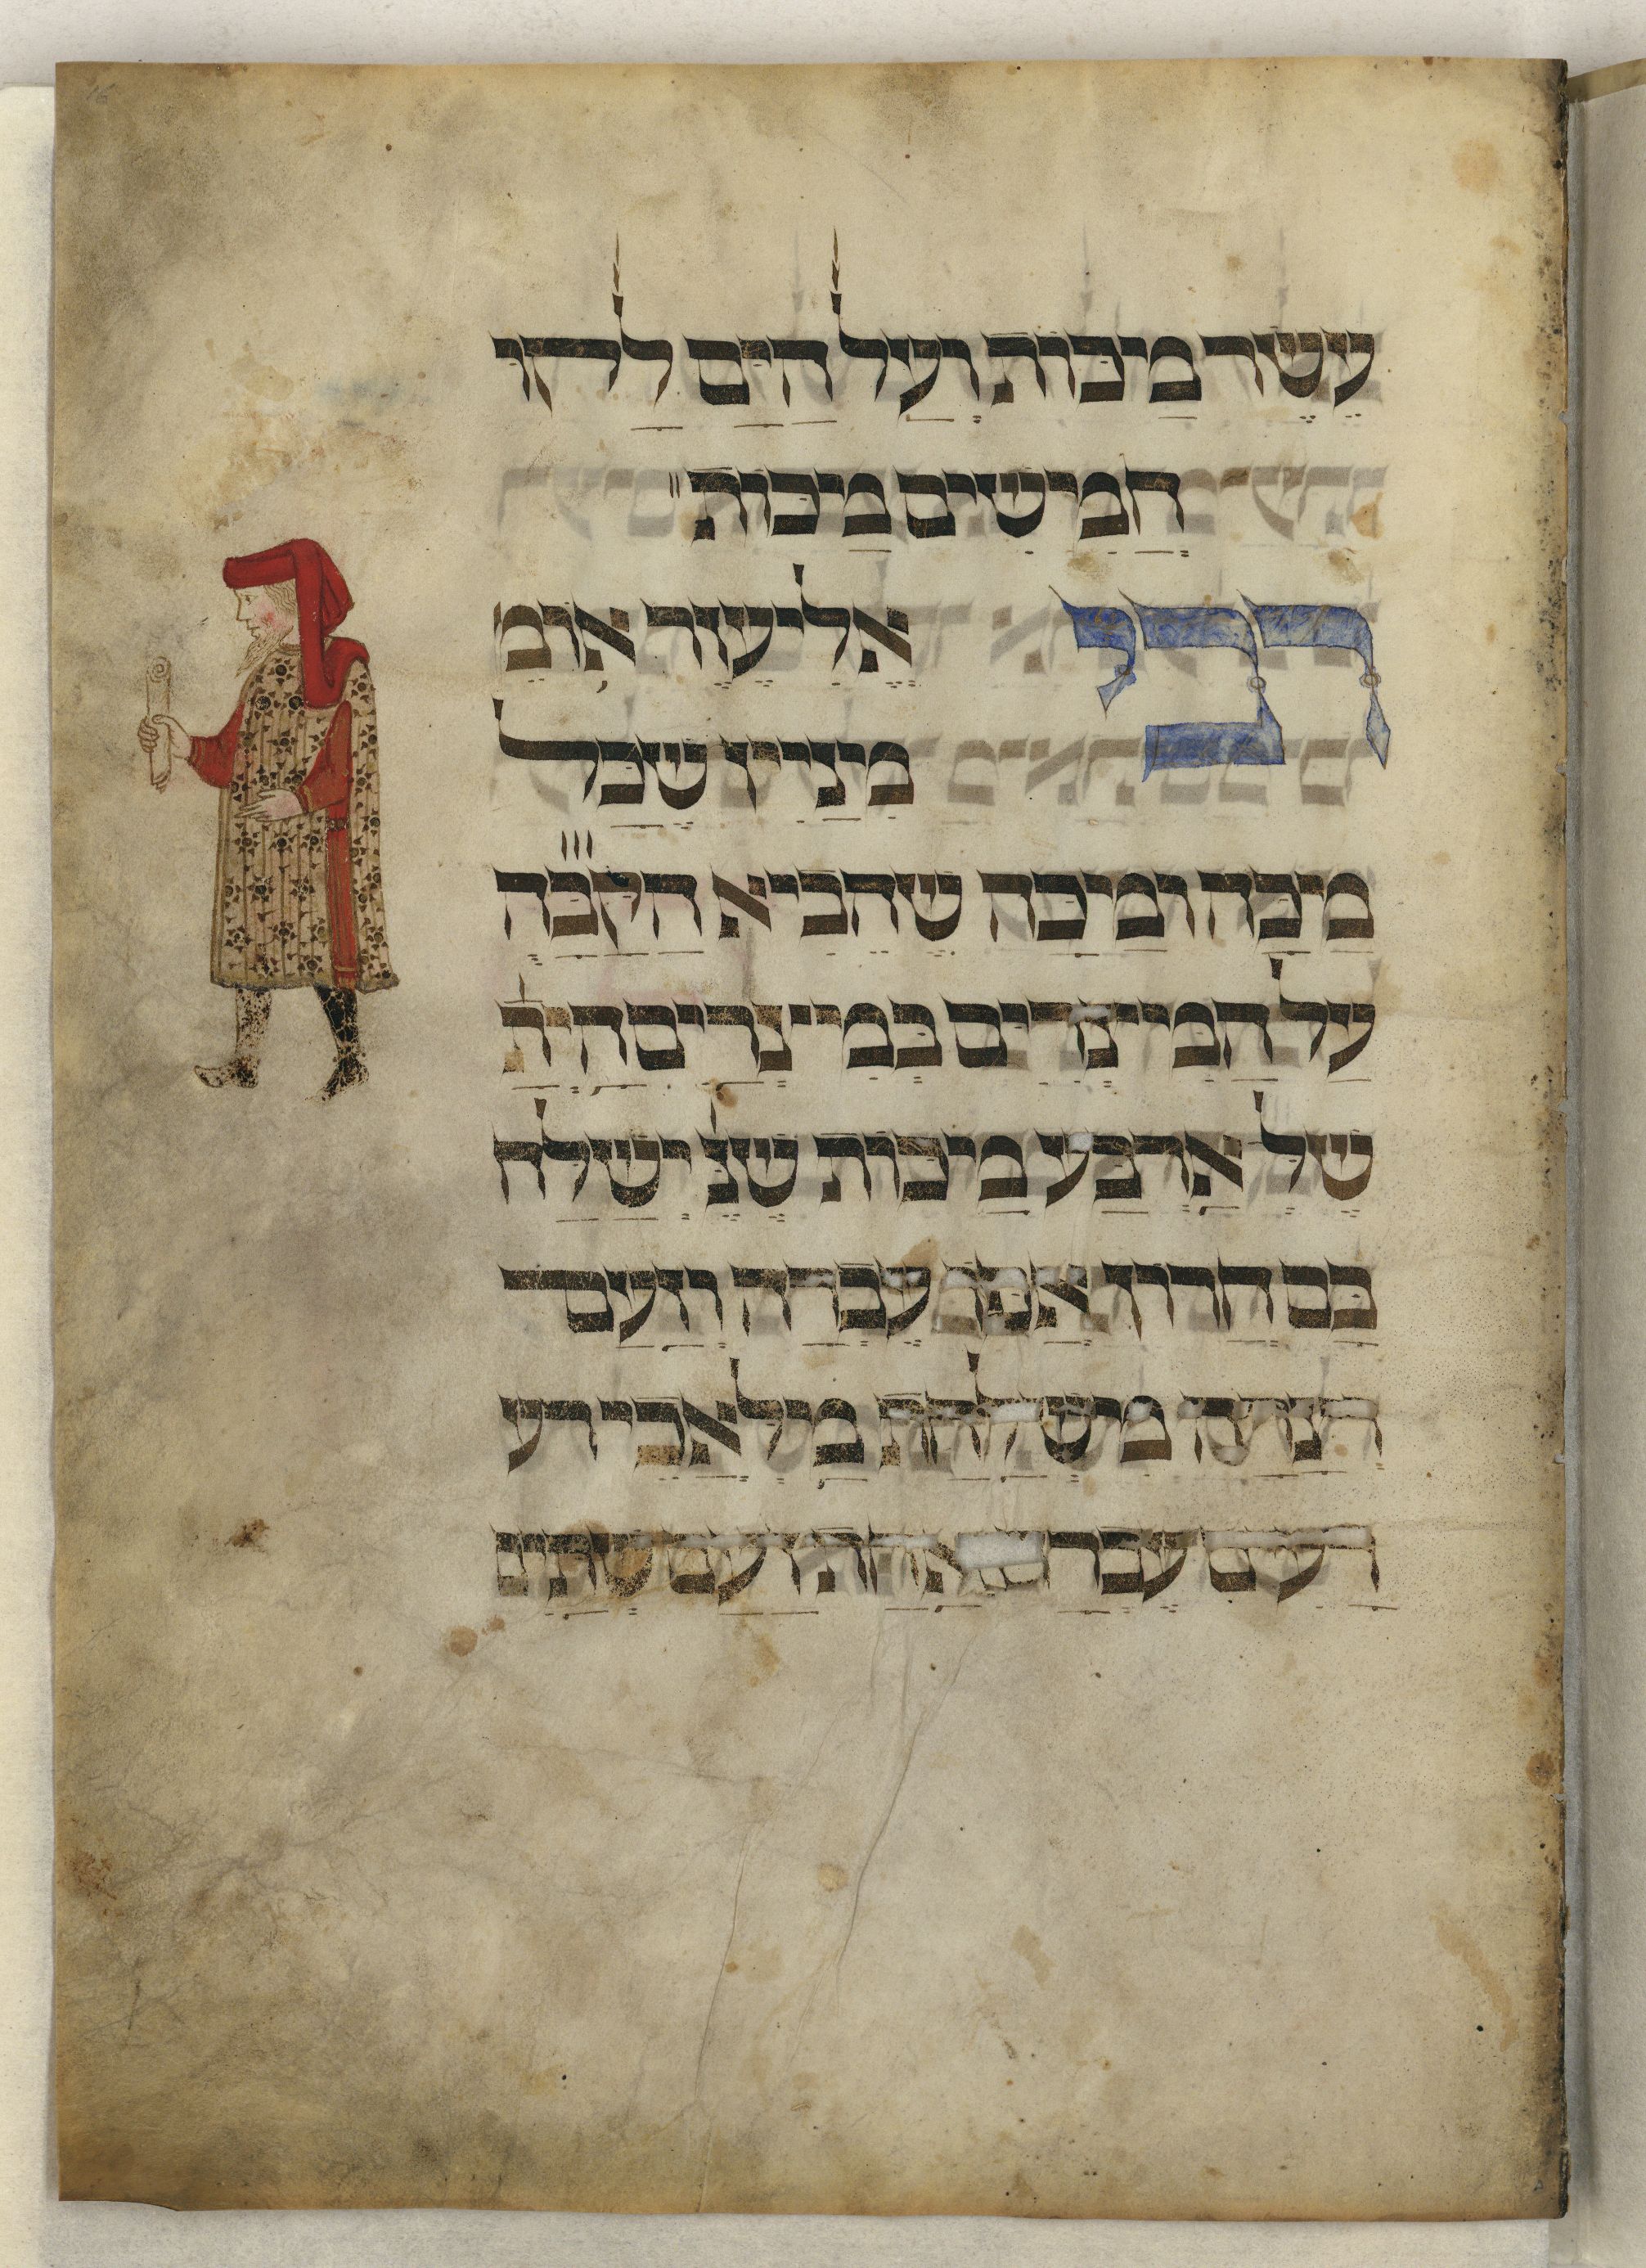 16
עשר מיכות ועל הים לקו
חמישים מיכות
רבי אליעזר אומ'
מיניין שכל
מיכה ומיכה שהביא הקבה
על המיצריים במיצרים הית'
של ארבע מיכות שנ' ישלח
בם חרון אפו עברה וזעם
וצרה מישלחת מילאכי רע
רעים עברה אחת וזעם שתים